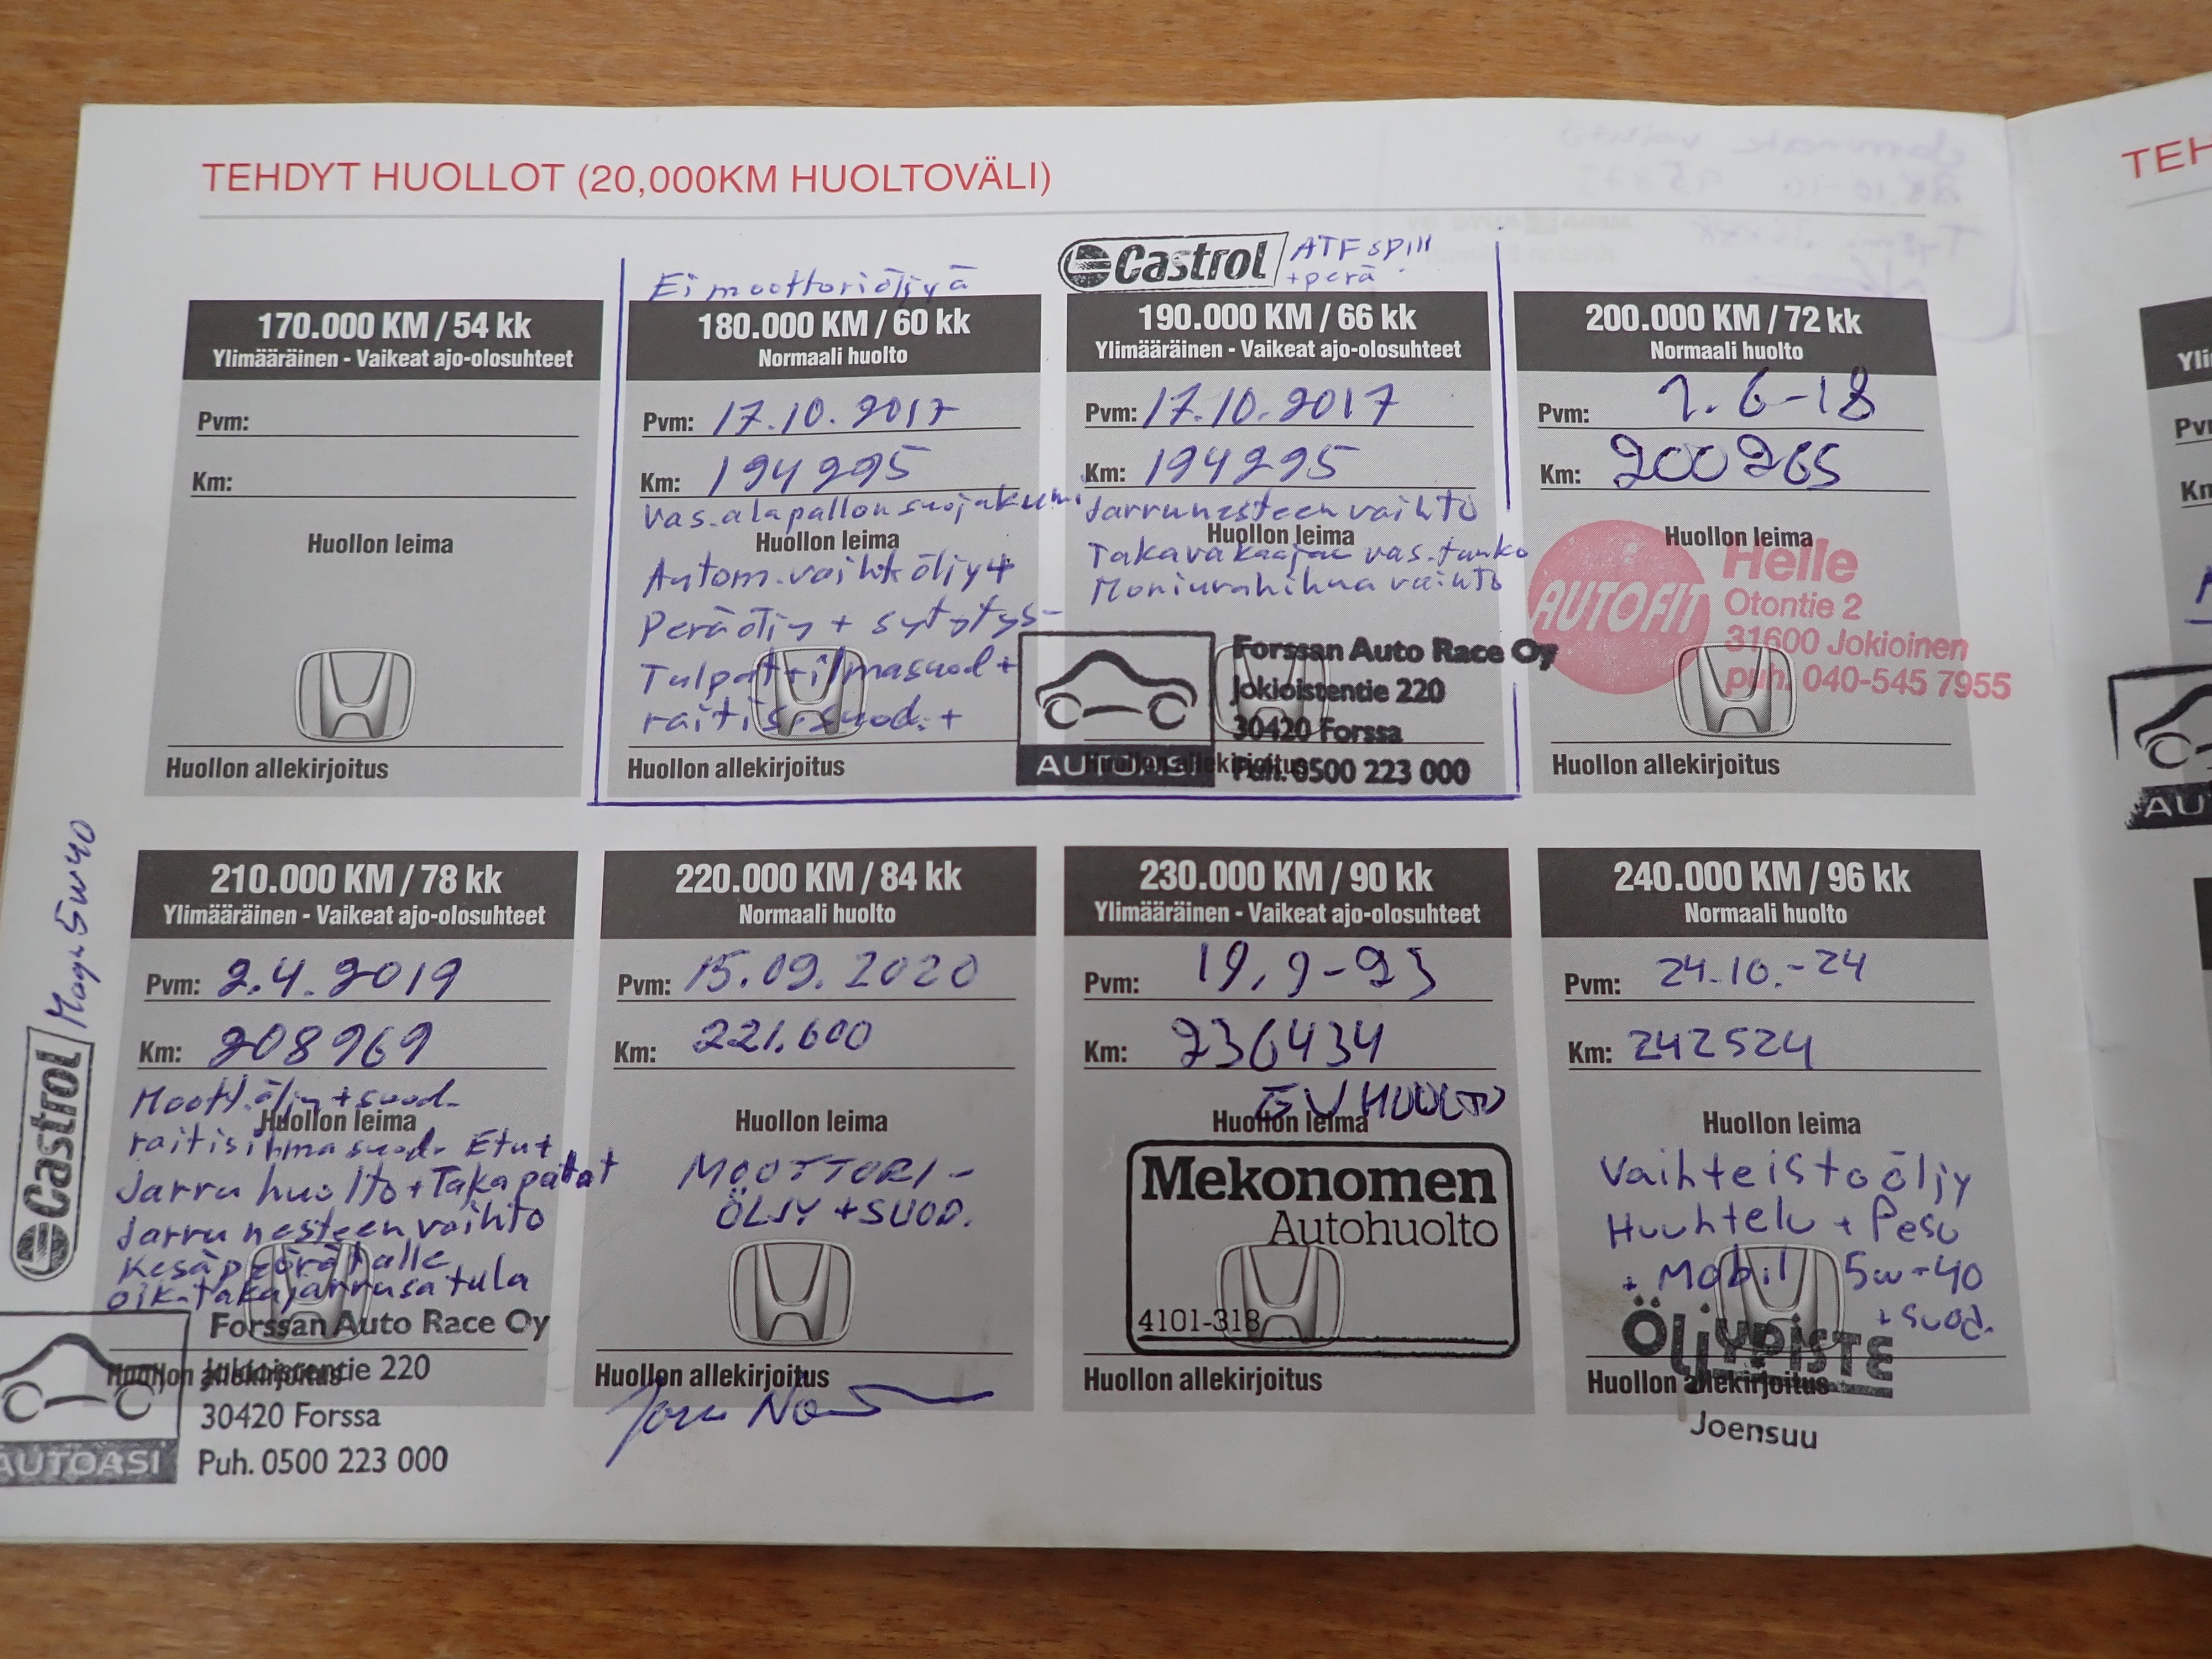 TEHDYT HUOLLOT (20,000KM HUOLTOVÄLI)
170.000 KM / 54 kk
Ylimääräinen - Vaikeat ajo-olosuhteet
Pvm:
Km:
Huollon leima
Huollon allekirjoitus
Ei moottoriöljyä
180.000 KM / 60 kk
Normaali huolto
Pvm: 17.10.2017
Km: 194295
Vas. alapallon suojakumi
Huollon leima
Autom.vaiht öljy +
Peräöljy + sytytys-
Tulpat + ilmasuod +
raitis.suod. +
Huollon allekirjoitus
Castrol ATF
+ perä
190.000 KM / 66 kk
Ylimääräinen - Vaikeat ajo-olosuhteet
Pvm: 17.10.2017
Km: 194295
Jarrunesteen vaihto
Huollon leima
Takavakaajan vas. tanko
Moniurahihna vaihto
AUTOASI
Forssan Auto Race Oy
Jokioistentie 220
30420 Forssa
Puh. 0500 223 000
Huollon allekirjoitus
200.000 KM / 72 kk
Normaali huolto
Pvm: 1.6-18
Km: 200265
Huollon leima
AUTOFIT
Helle
Otontie 2
31600 Jokioinen
puh. 040-545 7955
Huollon allekirjoitus
Castrol Magn 5w40
210.000 KM / 78 kk
Ylimääräinen - Vaikeat ajo-olosuhteet
Pvm: 2.4.2019
Km: 208969
Moott.öljy + suod.
Huollon leima
raitisilmasuod. Etu +
Jarru huolto + Takapalat
Jarrunesteen vaihto
Kesäpyörät alle
oik. takajarrusatula
Forssan Auto Race Oy
Jokioistentie 220
30420 Forssa
Puh. 0500 223 000
AUTOASI
Huollon allekirjoitus
220.000 KM / 84 kk
Normaali huolto
Pvm: 15.09.2020
Km: 221.600
Huollon leima
MOOTTORI-
ÖLJY + SUOD.
Huollon allekirjoitus
230.000 KM / 90 kk
Ylimääräinen - Vaikeat ajo-olosuhteet
Pvm: 19.9-23
Km: 236434
HUOLTO
Huollon leima
Mekonomen
Autohuolto
4101-318
Huollon allekirjoitus
240.000 KM / 96 kk
Normaali huolto
Pvm: 24.10.-24
Km: 242524
Huollon leima
Vaihteistoöljy
Huuhtelu + Pesu
+ Mobil 5w-40
+ suod.
ÖLJYPISTE
Huollon allekirjoitus
Joensuu
TEH
Yli
Pvm
Km
AU